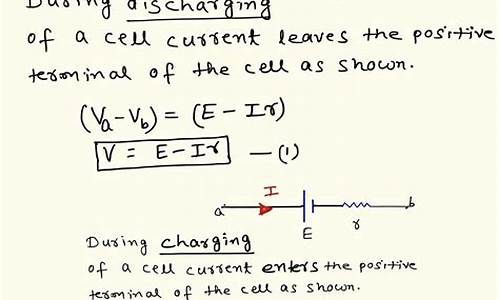 During discharging
of a cell current leaves the positive
terminal of the cell as shown.
(Va-Vb) = (E - Ir)
V = E - Ir — (1)
I
a b
E r
During charging
of a cell current enters the positive
terminal of the cell as shown.